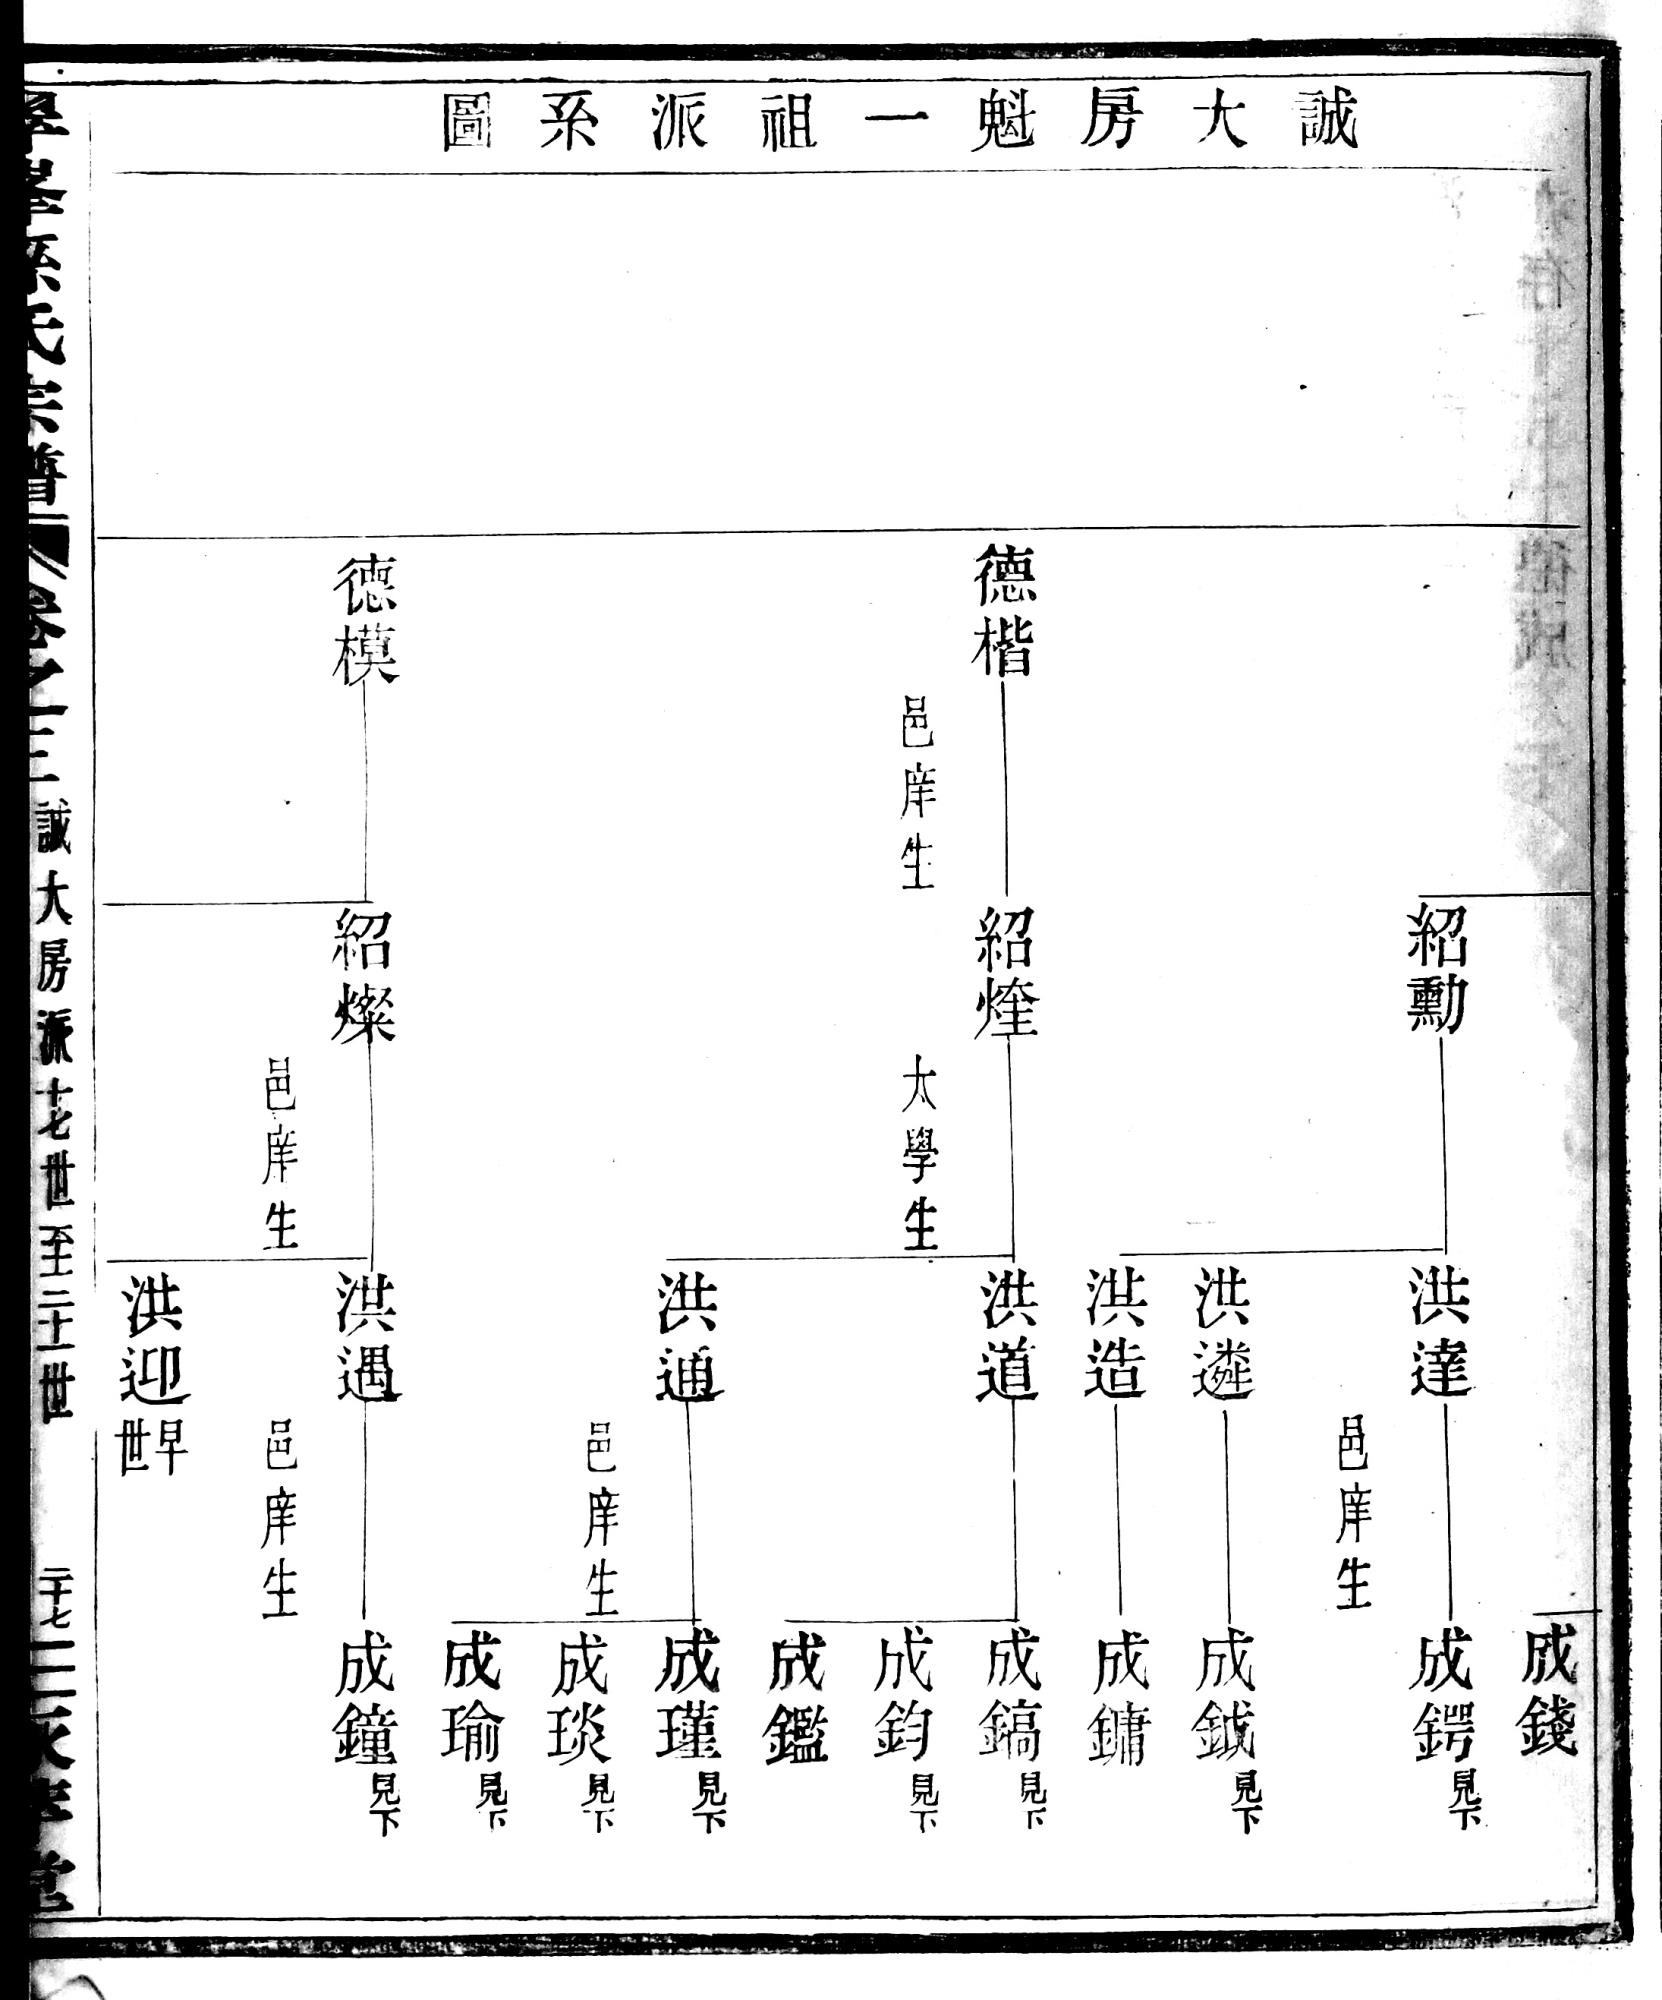 誠大房魁一祖派系圖
德楷
邑庠生
德模
紹勳
紹煃
太學生
紹燦
邑庠生
洪達
邑庠生
洪遴
洪造
洪道
洪通
邑庠生
洪遇
邑庠生
洪迎早世
成錢
成鍔見下
成鉞見下
成鏞
成鎬見下
成鈞見下
成鑑
成瑾見下
成琰見下
成瑜見下
成鐘見下
孫氏宗譜
卷之三
誠大房派十七世至二十一世
二十七